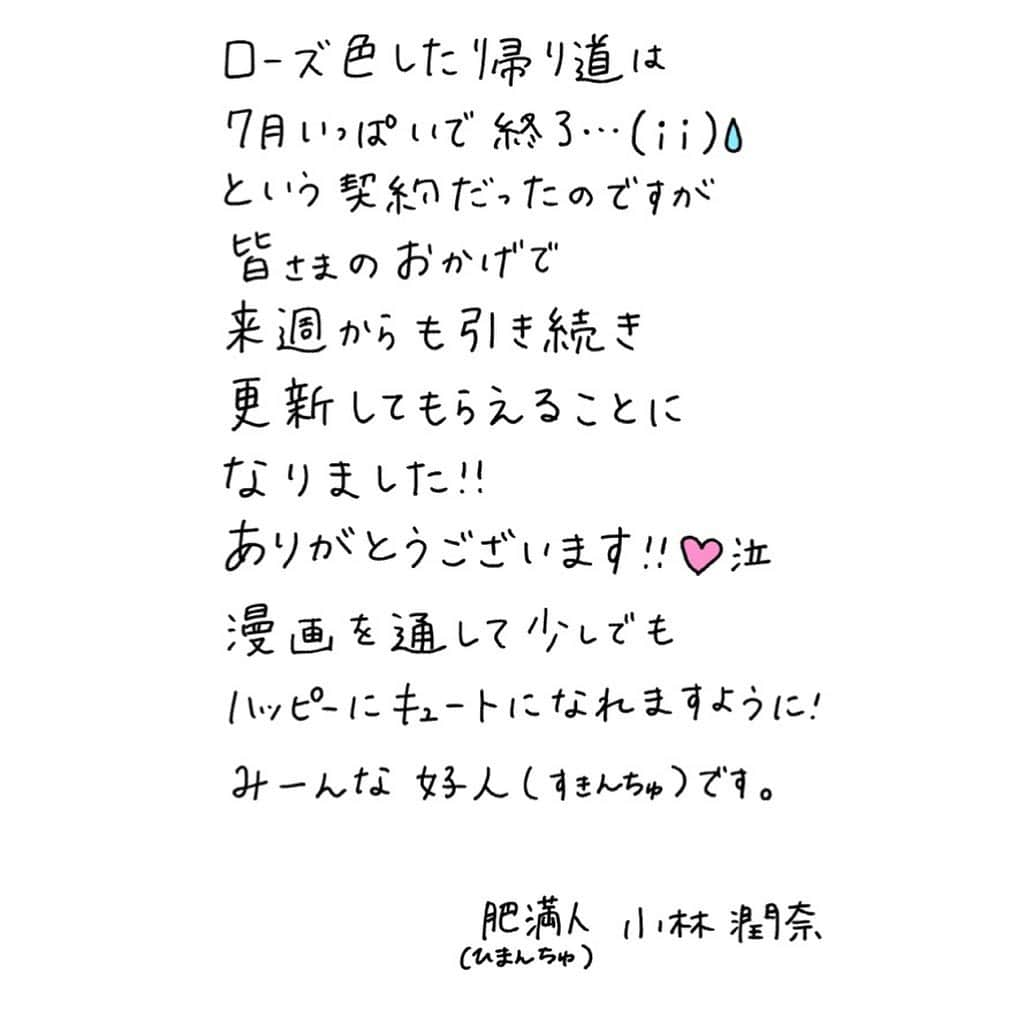 ローズ色した帰り道は
7月いっぱいで終了…(ii)💧
という契約だったのですが
皆さまのおかげで
来週からも引き続き
更新してもらえることに
なりました!!
ありがとうございます!!♥泣
漫画を通して少しでも
ハッピーにキュートになれますように!
みーんな 好人(すきんちゅ)です。
肥満人 小林潤奈
(ひまんちゅ)